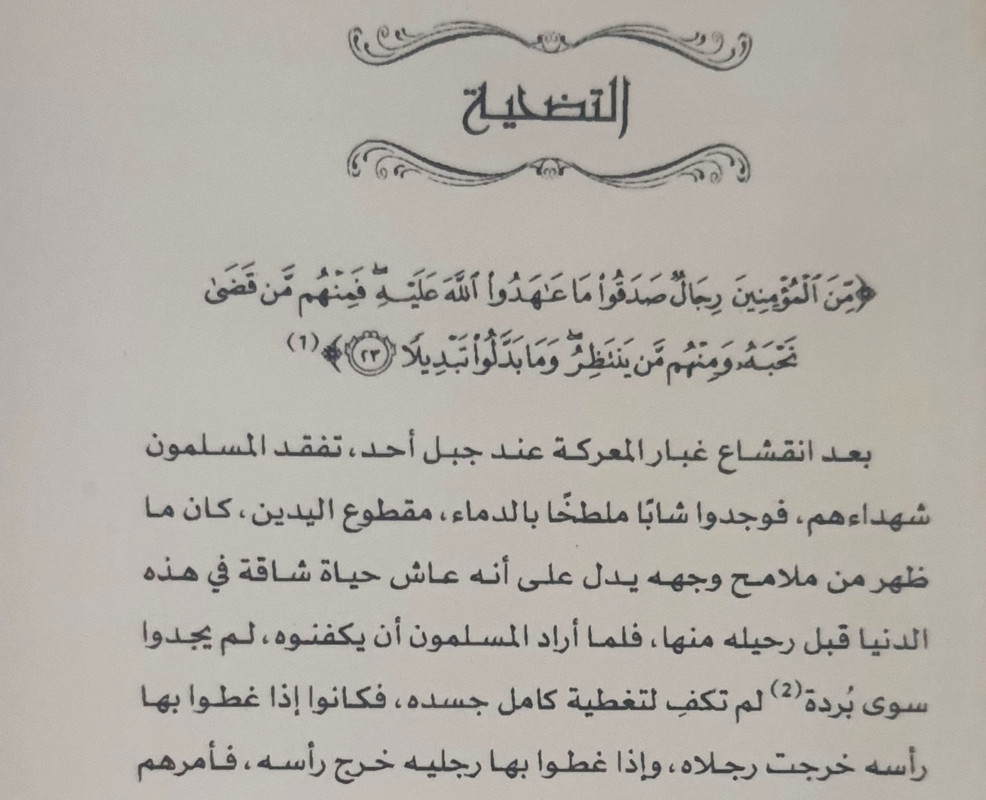 التضحية
﴿مِّنَ ٱلْمُؤْمِنِينَ رِجَالٌ صَدَقُوا۟ مَا عَـٰهَدُوا۟ ٱللَّهَ عَلَيْهِ ۖ فَمِنْهُم مَّن قَضَىٰ
نَحْبَهُۥ وَمِنْهُم مَّن يَنتَظِرُ ۖ وَمَا بَدَّلُوا۟ تَبْدِيلًا ٢٣﴾(1)
بعد انقشاع غبار المعركة عند جبل أحد، تفقد المسلمون
شهداءهم، فوجدوا شابًا ملطخًا بالدماء، مقطوع اليدين، كان ما
ظهر من ملامح وجهه يدل على أنه عاش حياة شاقة في هذه
الدنيا قبل رحيله منها، فلما أراد المسلمون أن يكفنوه، لم يجدوا
سوى بُردة(2) لم تكفِ لتغطية كامل جسده، فكانوا إذا غطوا بها
رأسه خرجت رجلاه، وإذا غطوا بها رجليه خرج رأسه، فأمرهم